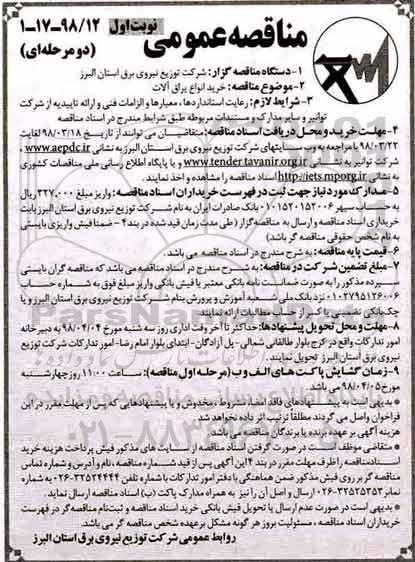 مناقصه عمومی
نوبت اول
۹۸/۱۲-۱۷-۱
(دو مرحله‌ای)
۱-دستگاه مناقصه گزار: شرکت توزیع نیروی برق استان البرز
۲-موضوع مناقصه: خرید انواع یراق آلات
۳- شرایط لازم: رعایت استانداردها، معیارها و الزامات فنی و ارائه تاییدیه از شرکت
توانیر و سایر مدارک و مستندات مربوطه طبق شرایط مندرج در اسناد مناقصه
۴-مهلت خرید و محل دریافت اسناد مناقصه: متقاضیان می توانند از تاریخ ۹۸/۰۳/۱۸ لغایت
۹۸/۰۳/۲۲ با مراجعه به وب سایتهای شرکت توزیع نیروی برق استان البرز به نشانی www.aepdc.ir ،
شرکت توانیر به نشانی www.tender.tavanir.org.ir و یا پایگاه اطلاع رسانی ملی مناقصات کشوری
به نشانی http://iets.mporg.ir اسناد مناقصه را اخذ نمایند.
۵-مدارک مورد نیاز جهت ثبت در فهرست خریداران اسناد مناقصه: واریز مبلغ ۳۲۷،۰۰۰ ریال
به حساب سپهر ۰۱۰۱۵۲۰۱۵۲۰۰۶ بانک صادرات ایران به نام شرکت توزیع نیروی برق استان البرز بابت
خریداری اسناد مناقصه و ارسال به مناقصه گزار (طی مدت زمان قید شده در بند ۴ - ضمنا فیش واریزی بایستی
به نام شخص حقوقی مناقصه گر باشد)
۶-قیمت پایه مناقصه: به شرح مندرج در اسناد مناقصه می باشد.
۷-مبلغ تضمین شرکت در مناقصه: به شرح مندرج در اسناد مناقصه می باشد که مناقصه گران بایستی
سپرده مذکور را به صورت ضمانت نامه بانکی معتبر یا فیش بانکی واریز مبلغ فوق به شماره حساب
۰۱۰۲۷۹۵۱۲۶۰۰۶ نزد بانک ملی شعبه آموزش و پرورش بنام شرکت توزیع نیروی برق استان البرز و یا
چک بانکی تضمینی یا کسر از حساب مطالبات ارائه نمایند.
۸-مهلت و محل تحویل پیشنهادها: حداکثر تا آخر وقت اداری روز سه شنبه مورخ ۹۸/۰۴/۰۴ به دبیرخانه
امور تدارکات واقع در کرج بلوار طالقانی شمالی - پل آزادگان - ابتدای بلوار امام رضا - امور تدارکات شرکت توزیع
نیروی برق استان البرز تحویل نمایند.
۹-زمان گشایش پاکت های الف و ب (مرحله اول مناقصه): ساعت ۱۱:۰۰ روز چهارشنبه
مورخ ۹۸/۰۴/۰۵ می باشد.
بدیهی است به پیشنهادهای فاقد امضا، مشروط، مخدوش و یا پیشنهادهایی که پس از مهلت مقرر در این
فراخوان واصل می گردند مطلقاً ترتیب اثر داده نخواهد شد.
هزینه آگهی بر عهده برنده یا برندگان مناقصه می باشد.
متقاضی موظف است در صورت گرفتن اسناد مناقصه از سایت های مذکور فیش پرداخت هزینه خرید
اسناد مناقصه را ظرف مهلت مقرر در بند ۴ این آگهی پس از قید شماره مناقصه، نام و آدرس و شماره تماس
مناقصه گر بر روی فیش مذکور ضمن هماهنگی با دفتر امور تدارکات با شماره تلفن ۳۲۵۲۴۴۴۴-۰۲۶ به شماره
نمابر ۳۲۵۲۵۳۵۳-۰۲۶ ارسال و اصل آن را نیز به همراه مدارک پاکت (ب) اسناد مناقصه ارسال نماید.
بدیهی است در صورت عدم ارسال یا تحویل فیش بانکی خرید اسناد مناقصه و ثبت نام مناقصه گر در فهرست
خریداران اسناد مناقصه، مسئولیت بروز هر گونه مشکل بر عهده شخص مناقصه گر می باشد.
روابط عمومی شرکت توزیع نیروی برق استان البرز